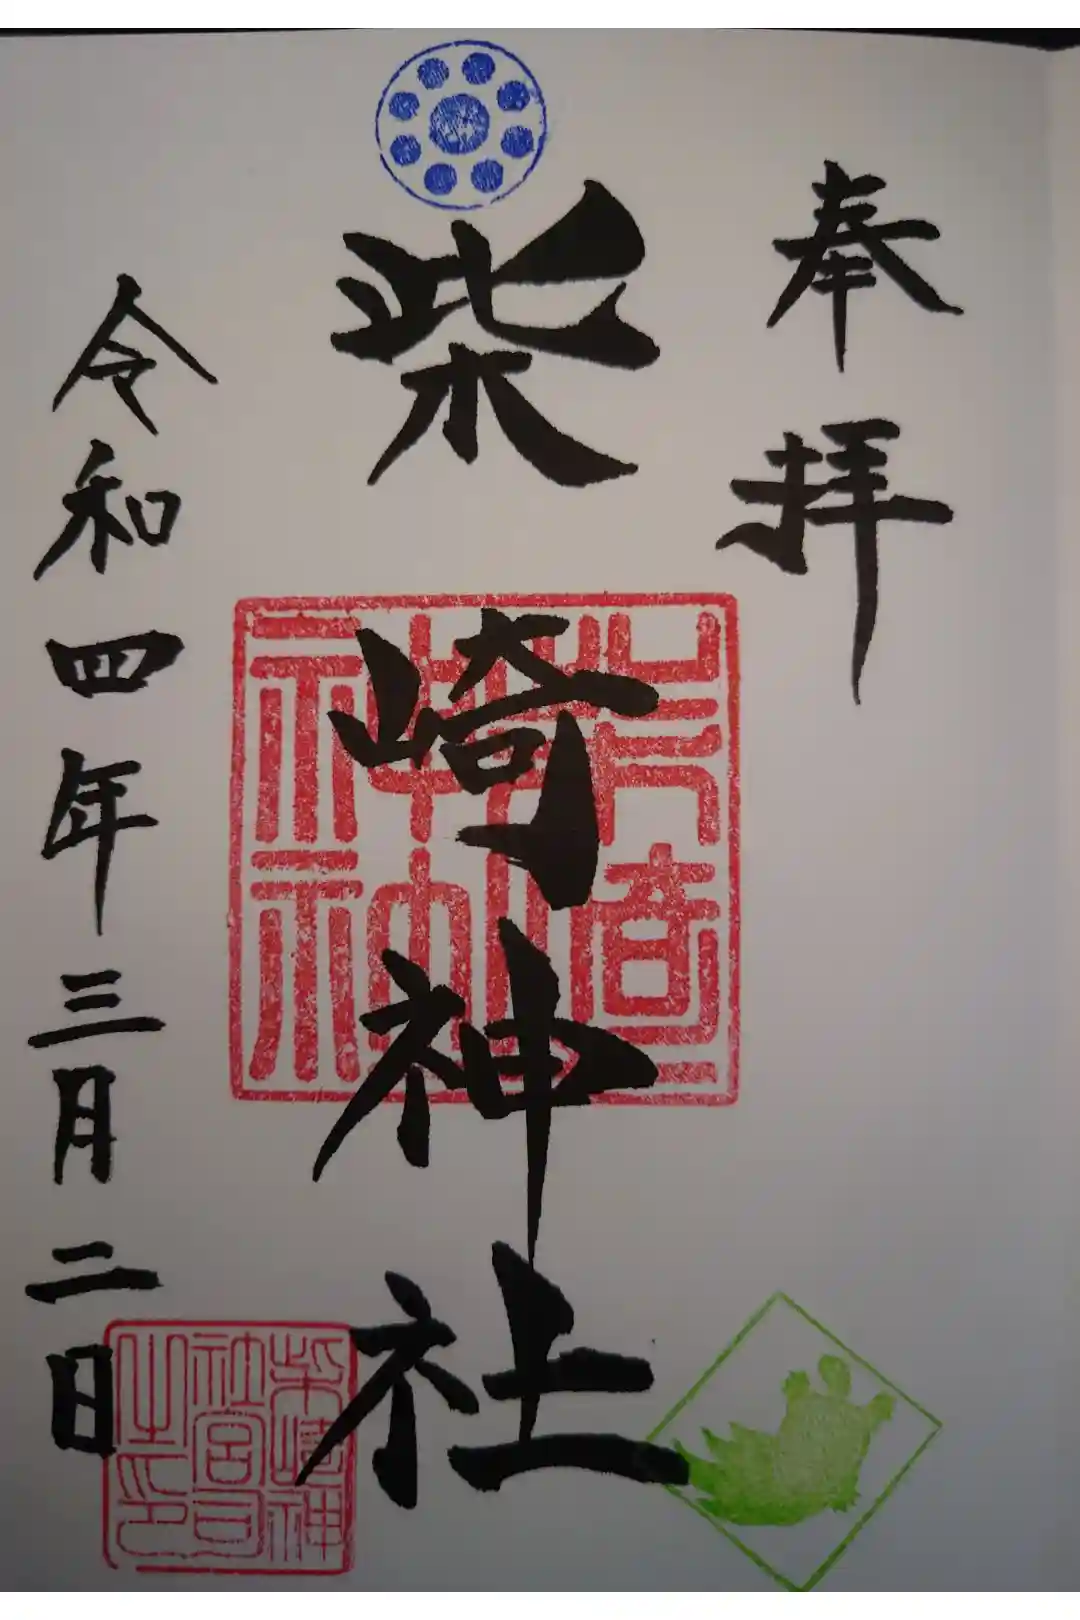 奉拝
柴崎神社
令和四年三月二日
柴崎神社
柴崎神社宮司之印